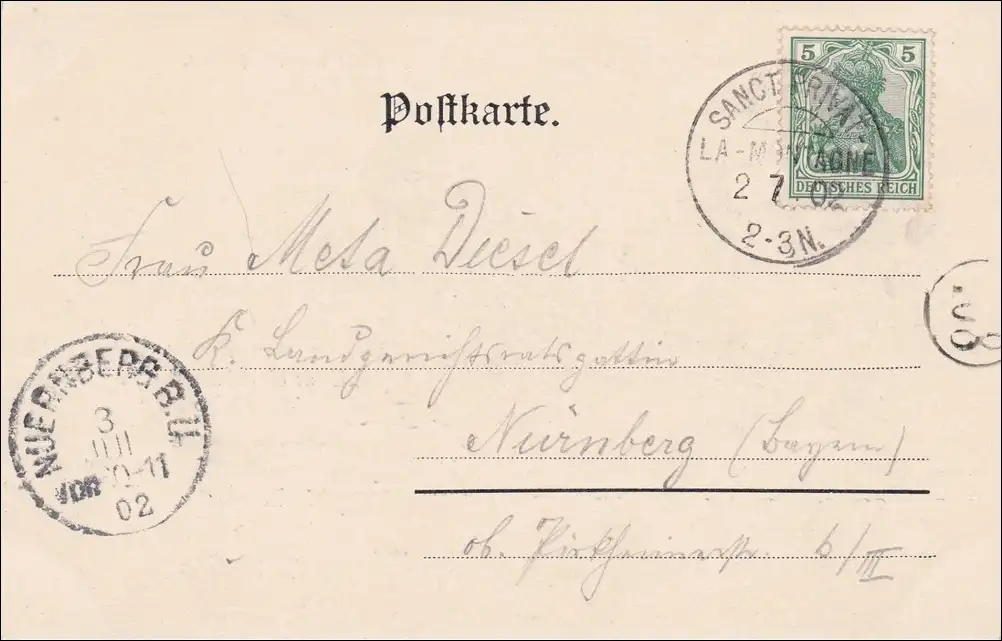 Postkarte.
5 5
DEUTSCHES REICH
SANCT PRIVAT-
LA-MONTAGNE
2 7 02
2-3N.
Frau Meta Diesel
K. Landgerichtsratsgattin
Nürnberg (Bayern)
ob. Pirkheimerstr. 6/III
NUERNBERG B.Ü.
3
JUL
VOR 10-11
02